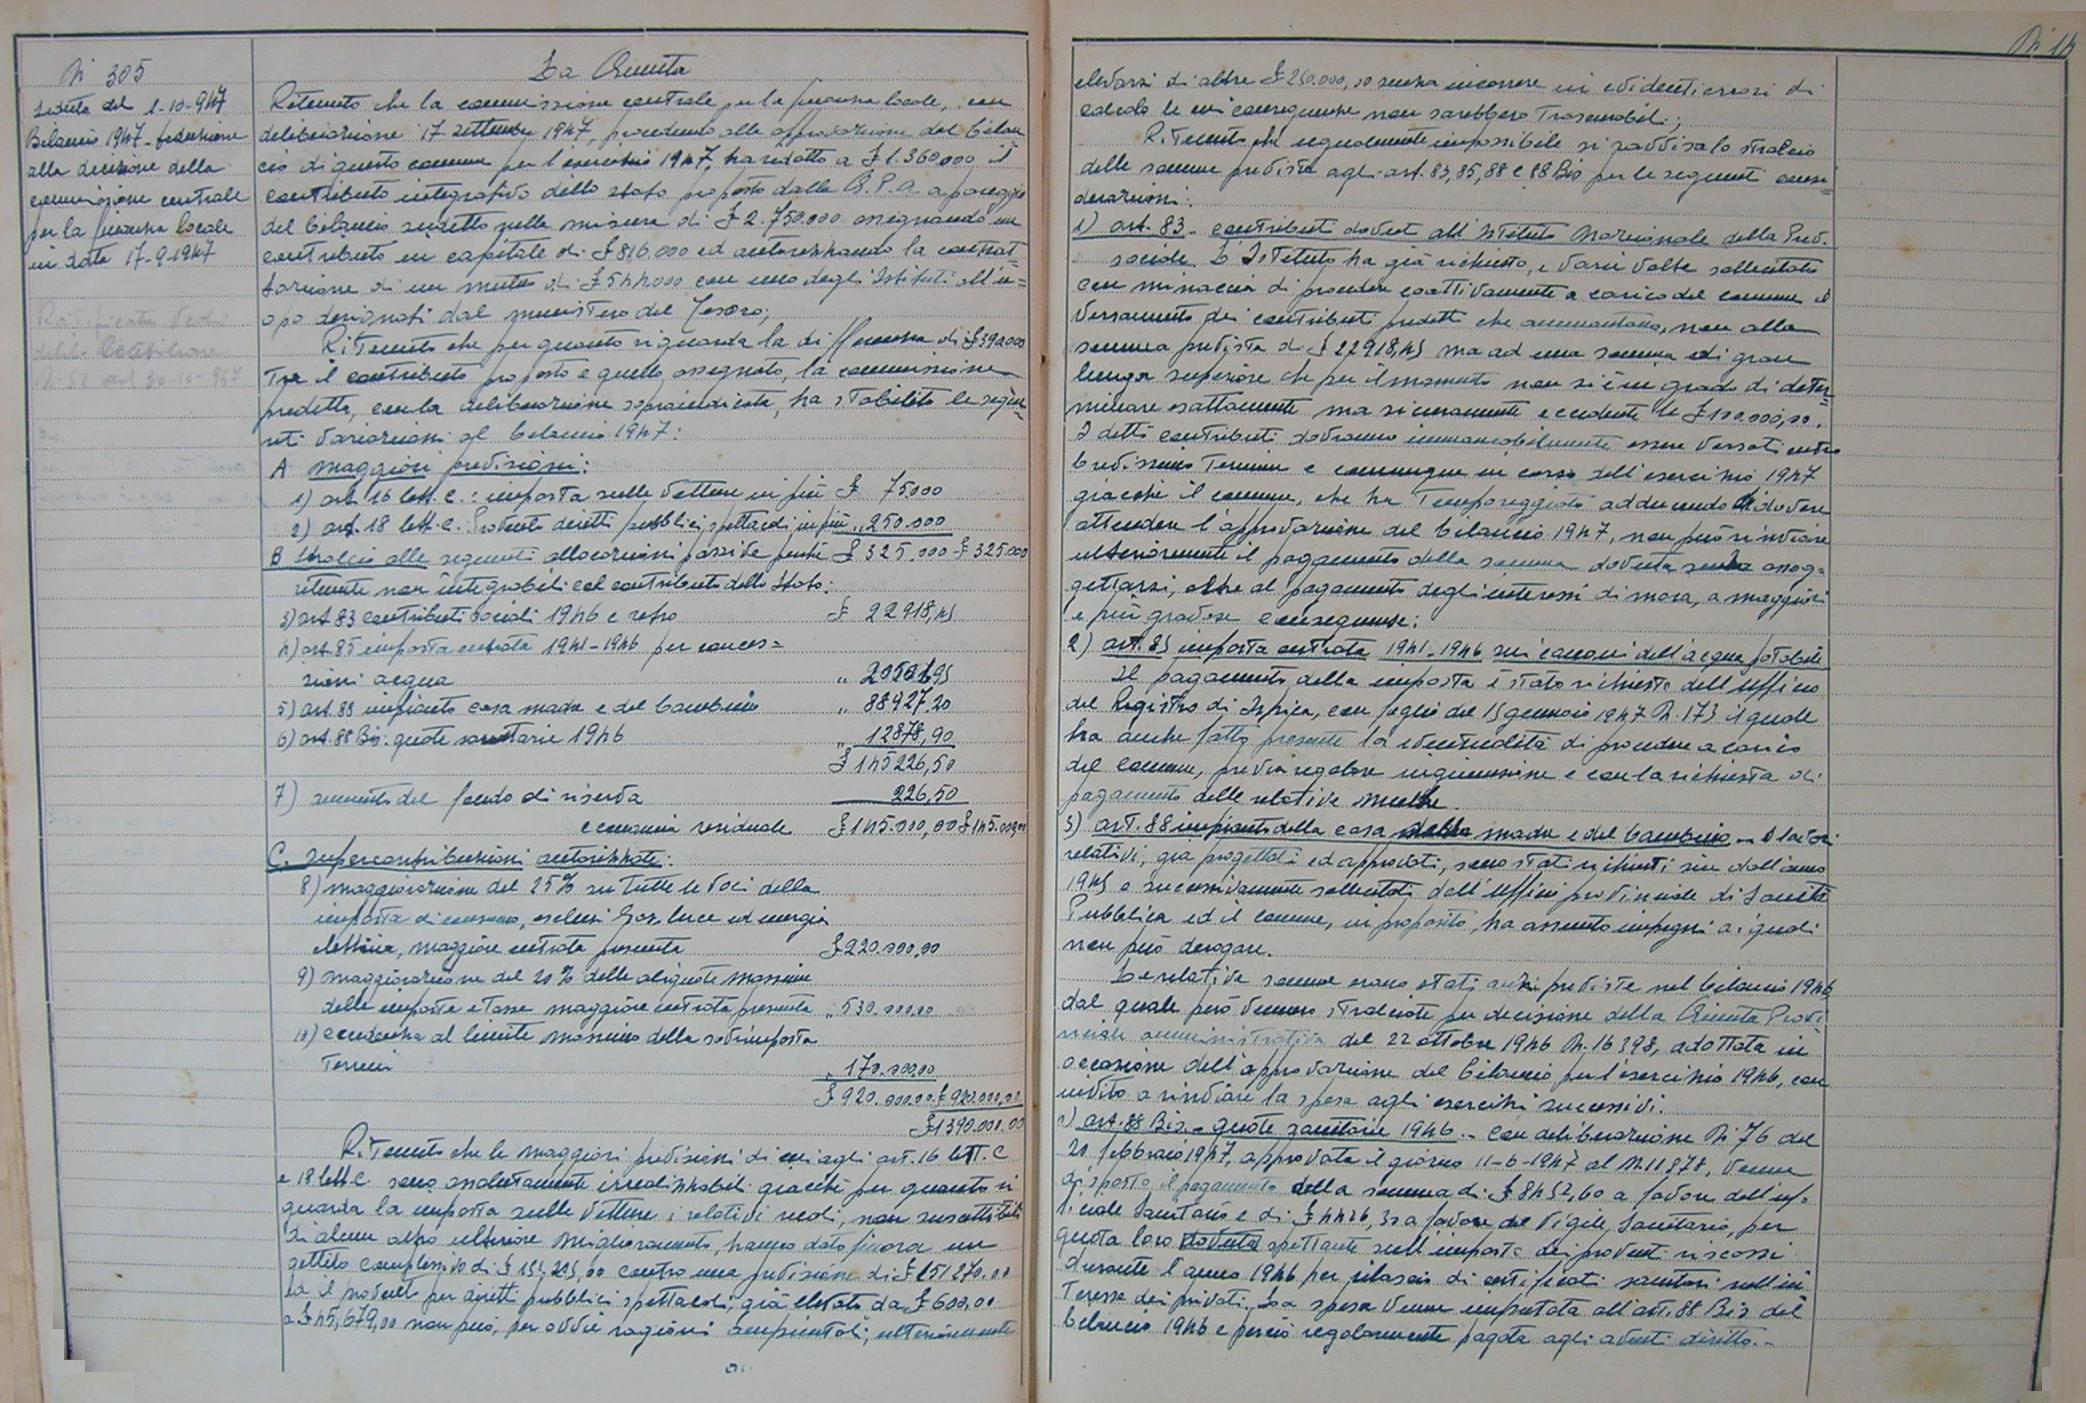 N 305
Seduta del 1-10-947
Bilancio 1947 - deduzione
alla decisione della
commissione centrale
per la finanza locale
in data 17-9-1947
Ratificata Vedi
delib. Consiliare
N. 52 del 30-10-947
La Giunta
Ritenuto che la commissione centrale per la finanza locale, con
deliberazione 17 settembre 1947, procedendo alla approvazione del bilan
cio di questo comune per l'esercizio 1947, ha ridotto a £ 1.360.000 il
contributo integrativo dello stato proposto dalla G.P.A. a pareggio
del bilancio suddetto nella misura di £ 2.750.000 assegnando un
contributo in capitale di £ 816.000 ed autorizzando la contrat=
tazione di un mutuo di £ 544000 con uno degli Istituti all'u=
opo designati dal ministero del Tesoro;
Ritenuto che per quanto riguarda la differenza di £ 1390.000
Tra il contributo proposto e quello assegnato, la commissione
predetta, con la deliberazione sopraindicata, ha stabilito le seguen=
ti variazioni al bilancio 1947:
A maggiori previsioni:
1) art. 16 lett. C.: imposta sulle vetture in più £ 75000
2) art. 18 lett. C. Proventi diritti pubblici spettacoli in più " 250.000
B Stralcio alle seguenti allocazioni passive perché £ 325.000 £ 325.000
ritenute non integrabili col contributo dello Stato:
3) art. 83 contributi sociali 1946 e retro £ 22918,45
4) art. 85 imposta entrata 1941-1946 per conces=
sioni acqua " 20501,95
5) art. 88 impianto casa madre e del bambino " 88927.20
6) art. 88 Bis: quote sanitarie 1946 " 12878,90
£ 145226,50
7) aumento del fondo di riserva 226,50
economia residuale £ 145.000,00 £ 145.000,00
C. supercontribuzioni autorizzate:
8) maggiorazione del 25% su tutte le voci della
imposta di consumo, esclusi Gas, luce ed energia
elettrica, maggiore entrata presunta £ 220.000,00
9) maggiorazione del 20% delle aliquote massime
delle imposte e tasse maggiore entrata presunta " 530.000.00
10) eccedenza al limite massimo della sovrimposta
Terreni " 170.000,00
£ 920.000.00 £ 920.000,00
£ 1390.000.00
Ritenuto che le maggiori previsioni di cui agli art. 16 lett. C
e 18 lett. C. sono assolutamente irrealizzabili giacché per quanto ri
guarda la imposta sulle vetture, i relativi ruoli, non suscettibili
di alcun altro ulteriore miglioramento, hanno dato finora un
gettito complessivo di £ 151,205,00 contro una previsione di £ 151270.00
ed il provento per diritti pubblici spettacoli, già elevato da £ 600,00
a £ 45,679,00 non può, per ovvie ragioni ambientali, ulteriormente
N 14
elevarsi di altre £ 250.000,00 senza incorrere in evidenti errori di
calcolo le cui conseguenze non sarebbero trascurabili;
Ritenuto che ugualmente impossibile si ravvisa lo stralcio
delle somme previste agli art. 83, 85, 88 e 88 Bis per le seguenti consi=
derazioni:
1) art. 83 - contributi dovuti all'Istituto Nazionale della Prev.
sociale. L'Istituto ha già richiesto, e varie volte sollecitato
con minaccia di procedere coattivamente a carico del comune il
versamento dei contributi predetti che ammontano, non alla
somma prevista di £ 22918,45 ma ad una somma di gran
lunga superiore che per il momento non si è in grado di deter=
minare esattamente ma sicuramente eccedente le £ 100.000,00.
I detti contributi dovranno immancabilmente essere versati entro
brevissimo termine e comunque in corso dell'esercizio 1947
giacché il comune, che ha temporeggiato adducendo di dovere
attendere l'approvazione del bilancio 1947, non può rinviare
ulteriormente il pagamento della somma dovuta senza assog=
gettarsi, oltre al pagamento degli interessi di mora, a maggiori
e più gravose conseguenze;
2) art. 85 imposta entrata 1941-1946 sui canoni dell'acqua potabile
Il pagamento della imposta è stato richiesto dall'Ufficio
del Registro di Ispica, con foglio del 15 gennaio 1947 N. 173 il quale
ha anche fatto presente la eventualità di procedere a carico
del comune, previa regolare ingiunzione e con la richiesta di
pagamento delle relative multe.
3) art. 88 impianto della casa della madre e del bambino - I lavori
relativi, già progettati ed approvati, sono stati richiesti sin dall'anno
1945 e successivamente sollecitati dall'Ufficio provinciale di Sanità
Pubblica ed il comune, in proposito, ha assunto impegni ai quali
non può derogare.
Le relative somme erano stati anzi previste nel bilancio 1946
dal quale però vennero stralciate per decisione della Giunta Provi
nciale amministrativa del 22 ottobre 1946 N. 16398, adottata in
occasione dell'approvazione del bilancio per l'esercizio 1946, con
invito a rinviare la spesa agli esercizi successivi.
4) art. 88 Bis - quote sanitarie 1946 - Con deliberazione N 76 del
20 febbraio 1947, approvata il giorno 11-6-1947 al N. 11878, venne
disposto il pagamento della somma di £ 8452,60 a favore dell'uffi
ciale Sanitario e di £ 4426,30 a favore del Vigile Sanitario, per
quota loro dovuta spettante sull'imposta dei proventi riscossi
durante l'anno 1946 per rilascio di certificati sanitari nell'in
teresse dei privati. La spesa venne imputata all'art. 88 Bis del
bilancio 1946 e perciò regolarmente pagata agli aventi diritto.-